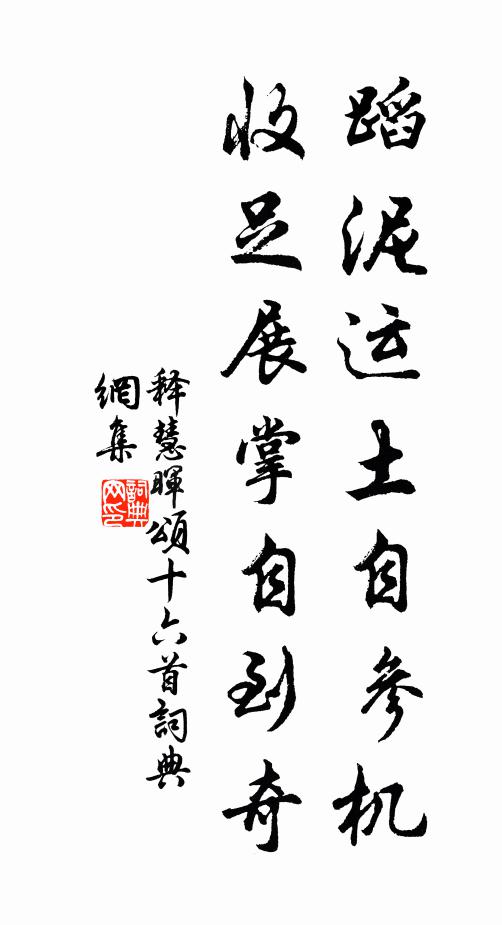 蹈泥运土自参机
收足展掌自到奇
释慧暉頌十六首詞典
網集
詞典
网印